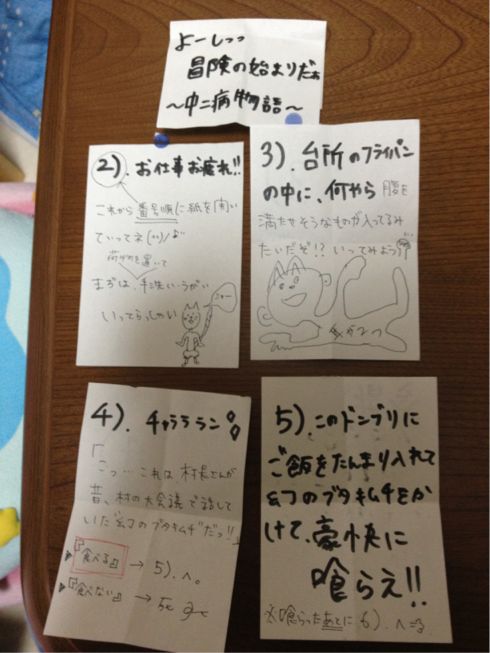 よーしっっ
冒険の始まりだぉ
〜中二病物語〜
2). お仕事お疲れ!!
これから番号順に紙を開い
ていってネ(^^)/♪
荷物を置いて
まずは、手洗い・うがい
いってらっしゃい
3). 台所のフライパン
の中に、何やら腹を
満たせそうなものが入ってるみ
たいだぞ!? いってみよう!
4). チャララララン
「
こっ…これは村長さんが
昔、村の大会議で話して
いた"幻のブタキムチ"だっ!!」
▶『食べる』→ 5).へ。
▶『食べない』→ 死
5). このドンブリに
ご飯をたんまり入れて
幻のブタキムチをか
けて、豪快に
喰らえ!!
※喰らったあとに 6).へ